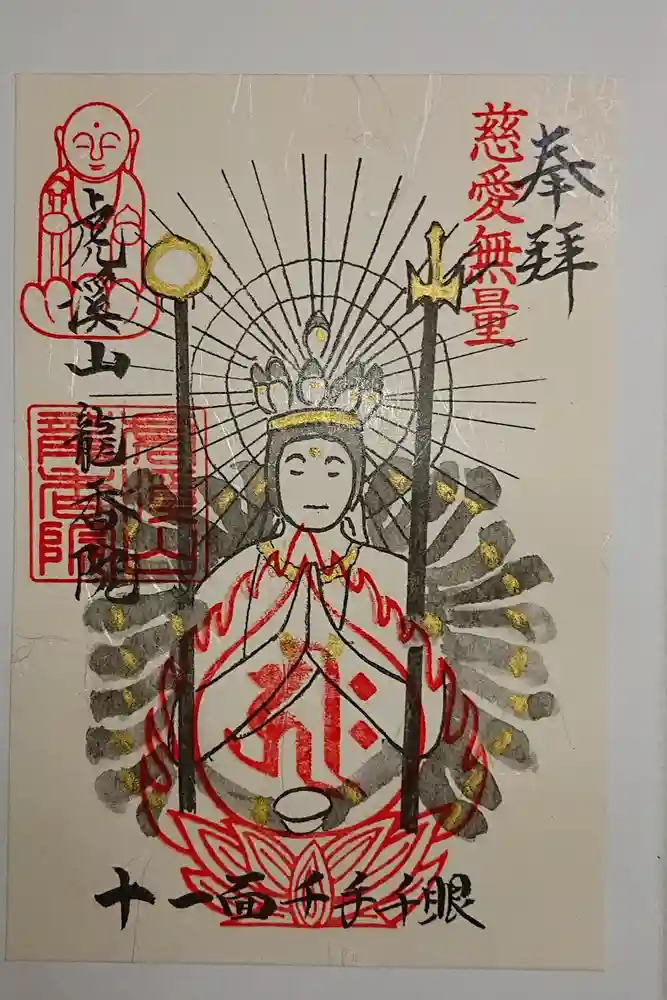 奉拝
慈愛無量
虎溪山
龍香院
十一面千手千眼